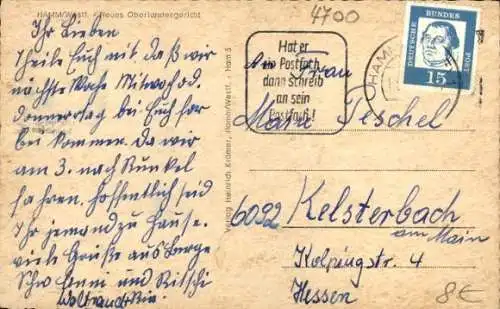 HAMM/Westf. Neues Oberlandesgericht
4700
Ihr Lieben
Theile Euch mit. Daß wir
nächste Woche Mittwoch od.
Donnerstag bei Euch vor
bei kommen. Da wir
am 3. nach Runkel
fahren. Hoffentlich seid
Ihr jemand zu Hause.
viele Grüße aus Berge
Schw. Enni und Ritschi
Waltraud
Verlag Heinrich Krämer, Hamm/Westf. - Ham 5
Hat er
ein Postfach,
dann schreib
an sein
Postfach!
HAMM
DEUTSCHE BUNDESPOST
15
Frau
Maria Peschel
6092 Kelsterbach
am Main
Kolpingstr. 4
Hessen
8€